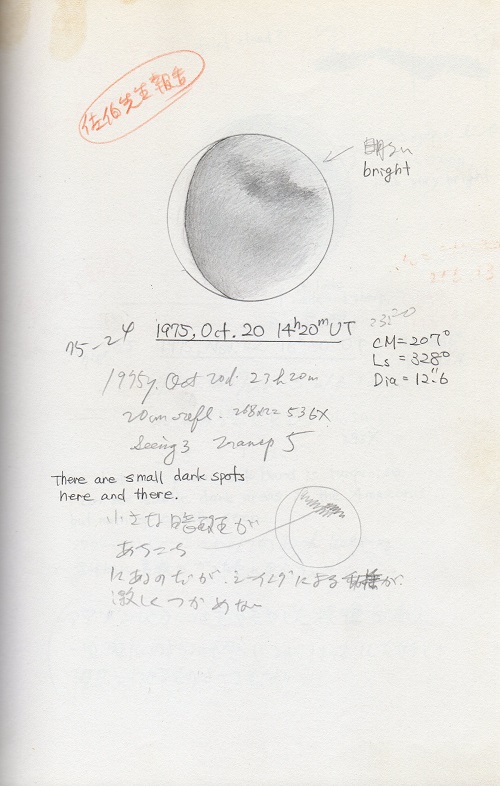 佐伯先生報告
明るい
bright
75-24
1975, Oct. 20 14h20mUT
CM=207°
Ls = 328°
Dia = 12".6
1975y. Oct 20d. 23h20m
20cm refl. 268×2=536X
Seeing 3 Transp 5
There are small dark spots
here and there.
小さな暗斑が
あちこち
にあるのだが、シーイングによる が
激しくつかめない